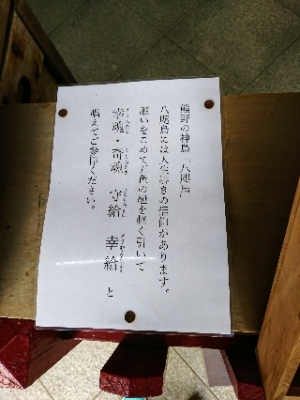 熊野の神鳥「八咫烏」
八咫烏には人生導きの信仰があります。
願いをこめて五色の紐を軽く引いて
幸魂・奇魂 守給 幸給 と
唱えてご参行ください。